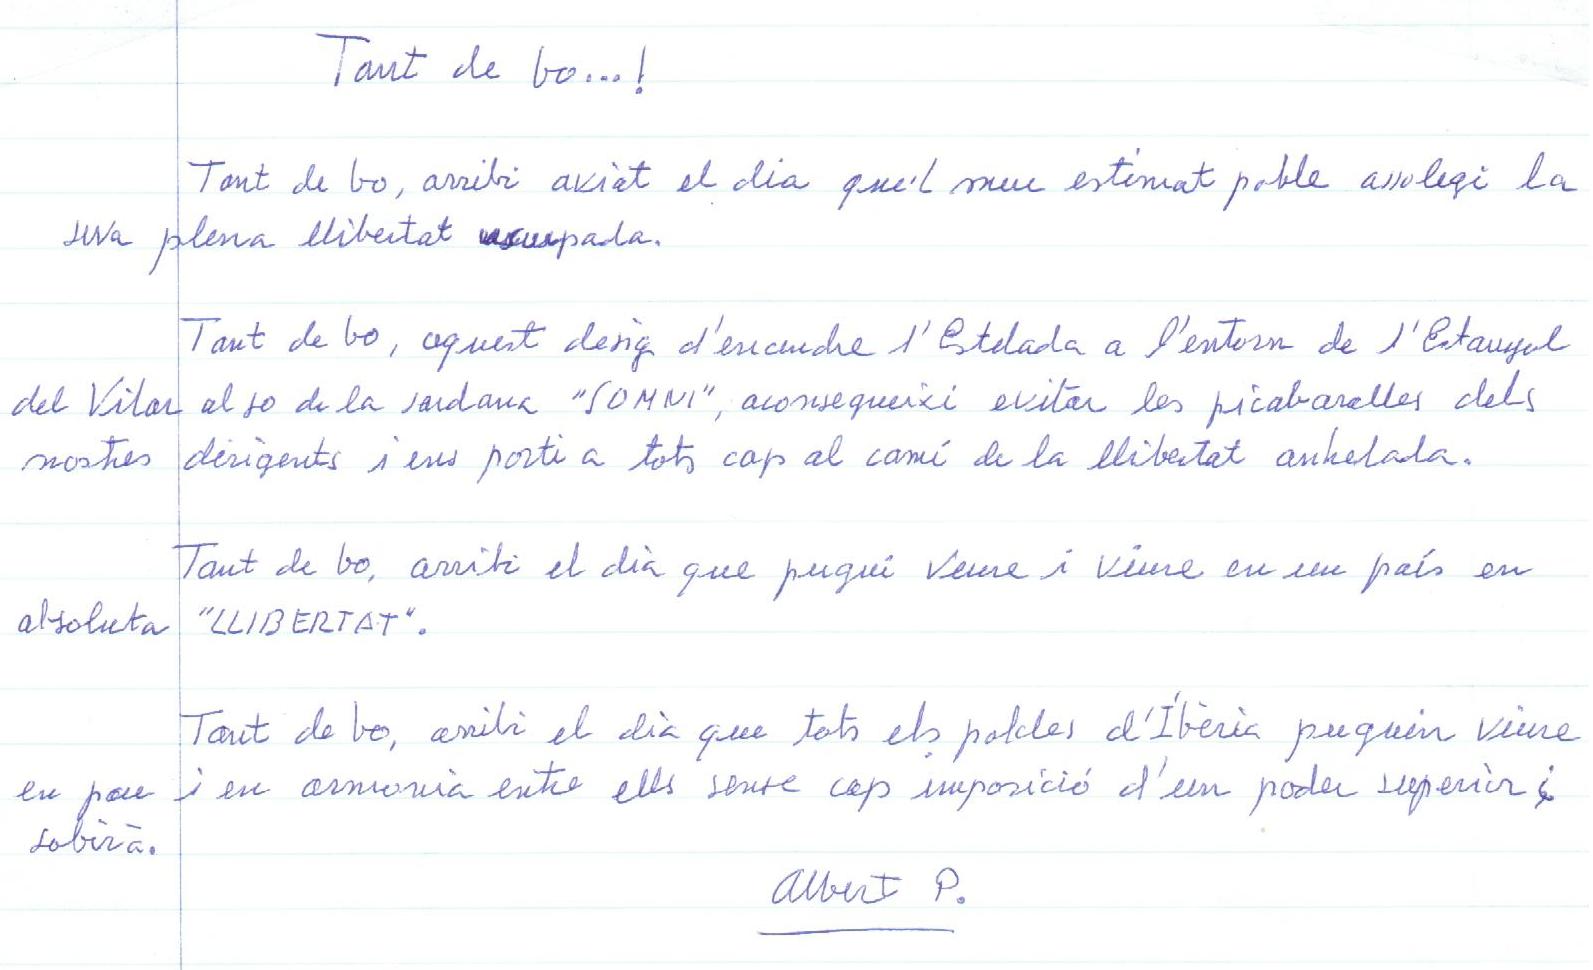 Tant de bo...!
Tant de bo, arribi aviàt el dia que'l meu estimat poble assolegi la
seva plena llibertat usurpada.
Tant de bo, aquest desig d'encendre l'Estelada a l'entorn de l'Estanyol
del Vilar al so de la sardana "SOMNI", aconsegueixi evitar les picabaralles dels
nostres dirigents i ens porti a tots cap al camí de la llibertat anhelada.
Tant de bo, arribi el dia que pugui veure i viure en un país en
absoluta "LLIBERTAT".
Tant de bo, arribi el dia que tots els pobles d'Ibèria puguin viure
en pau i en armonia entre ells sense cap imposició d'un poder superior i
sobirà.
Albert P.